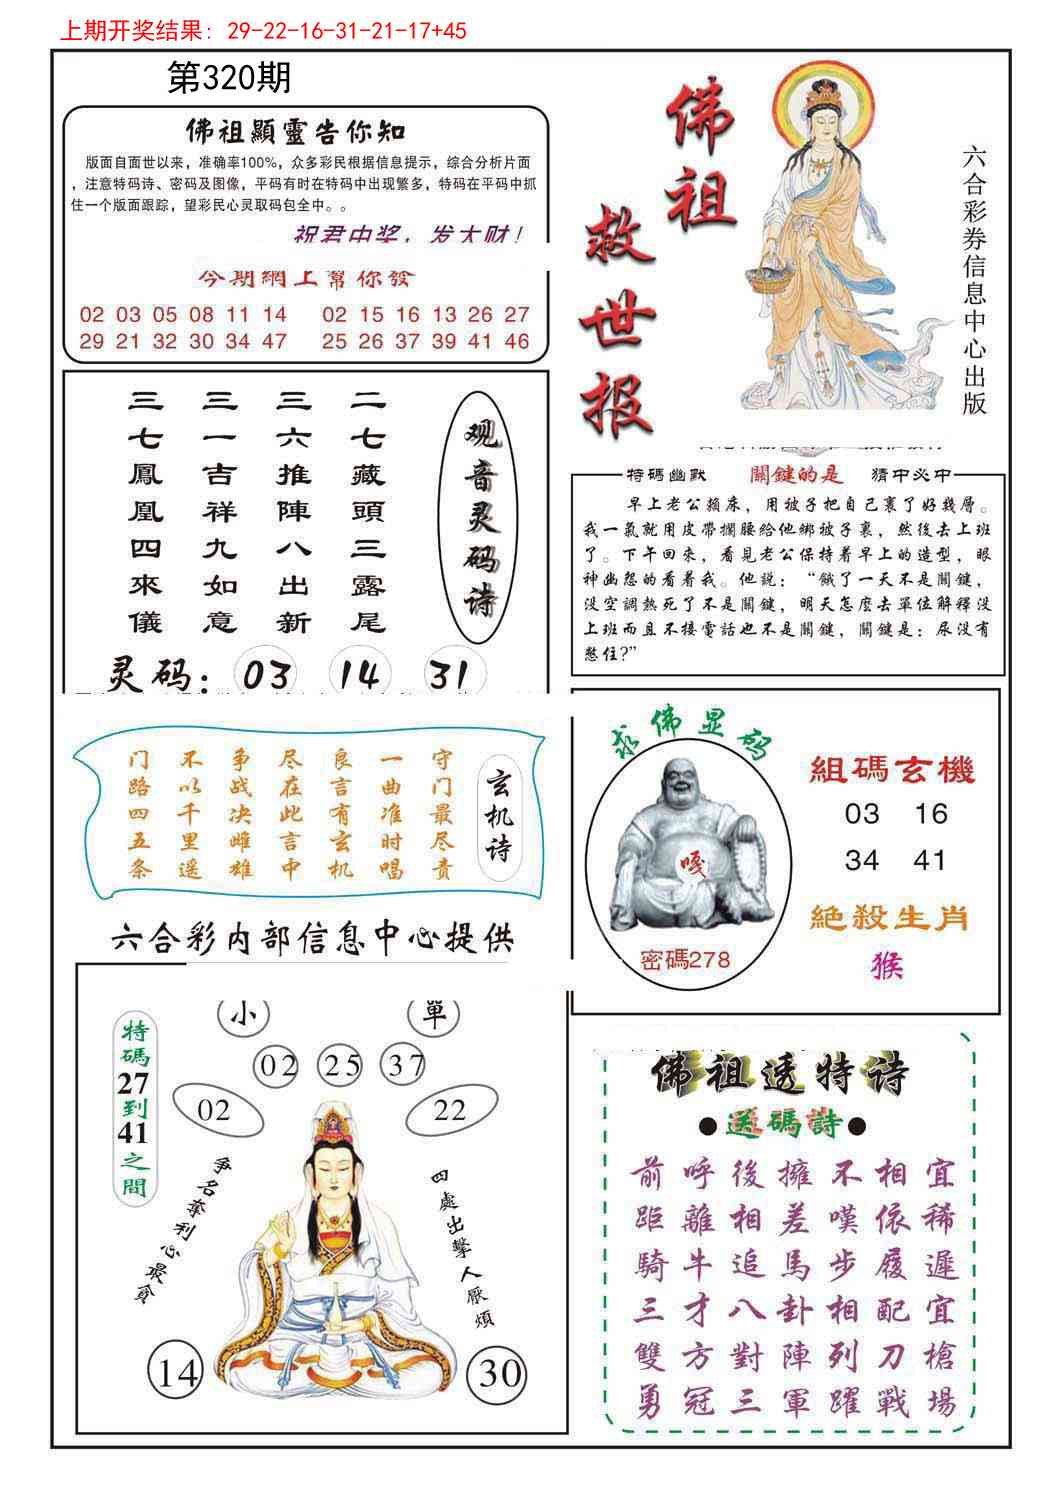 上期开奖结果：29-22-16-31-21-17+45
第320期
佛祖顯靈告你知
版面自面世以来，准确率100%，众多彩民根据信息提示，综合分析片面
，注意特码诗、密码及图像，平码有时在特码中出现繁多，特码在平码中抓
住一个版面跟踪，望彩民心灵取码包全中。。
祝君中奖，发大财！
今期網上幫你發
02 03 05 08 11 14 02 15 16 13 26 27
29 21 32 30 34 47 25 26 37 39 41 46
佛祖
救世报
六合彩券信息中心出版
观音灵码诗
二七藏頭三露尾
三六推陳八出新
三一吉祥九如意
三七鳳凰四來儀
灵码：03 14 31
特碼幽默 關鍵的是 猜中必中
早上老公賴床，用被子把自己裹了好幾層。
我一氣就用皮帶攔腰給他綁被子裏，然後去上班
了。下午回來，看見老公保持着早上的造型，眼
神幽怨的看着我。他説：“餓了一天不是關鍵，
没空調熱死了不是關鍵，明天怎麽去單位解釋没
上班而且不接電話也不是關鍵，關鍵是：尿没有
憋住?”
玄机诗
守门最尽责
一曲准时唱
良言有玄机
尽在此言中
争战决雌雄
不以千里遥
门路四五条
求佛显码
嘎
密碼278
組碼玄機
03 16
34 41
絶殺生肖
猴
六合彩内部信息中心提供
小 單
02 25 37
02 22
特碼27到41之間
争名奪利心最貪
四處出擊人厭煩
14 30
佛祖透特诗
●送碼詩●
前呼後擁不相宜
距離相差嘆依稀
騎牛追馬步履遲
三才八卦相配宜
雙方對陣列刀槍
勇冠三軍躍戰場